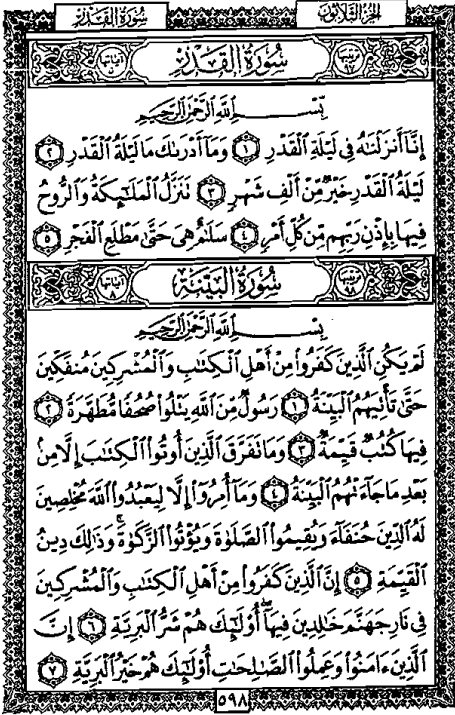 الجزء الثلاثون سورة القدر
سُورَةُ القَدْرِ
بِسْمِ اللَّهِ الرَّحْمَٰنِ الرَّحِيمِ
إِنَّا أَنزَلْنَٰهُ فِى لَيْلَةِ الْقَدْرِ ١ وَمَا أَدْرَىٰكَ مَا لَيْلَةُ الْقَدْرِ ٢
لَيْلَةُ الْقَدْرِ خَيْرٌ مِّنْ أَلْفِ شَهْرٍ ٣ تَنَزَّلُ الْمَلَٰٓئِكَةُ وَالرُّوحُ
فِيهَا بِإِذْنِ رَبِّهِم مِّن كُلِّ أَمْرٍ ٤ سَلَٰمٌ هِىَ حَتَّىٰ مَطْلَعِ الْفَجْرِ ٥
سُورَةُ البَيِّنَةِ
بِسْمِ اللَّهِ الرَّحْمَٰنِ الرَّحِيمِ
لَمْ يَكُنِ الَّذِينَ كَفَرُوا۟ مِنْ أَهْلِ الْكِتَٰبِ وَالْمُشْرِكِينَ مُنفَكِّينَ
حَتَّىٰ تَأْتِيَهُمُ الْبَيِّنَةُ ١ رَسُولٌ مِّنَ اللَّهِ يَتْلُوا۟ صُحُفًا مُّطَهَّرَةً ٢
فِيهَا كُتُبٌ قَيِّمَةٌ ٣ وَمَا تَفَرَّقَ الَّذِينَ أُوتُوا۟ الْكِتَٰبَ إِلَّا مِنۢ
بَعْدِ مَا جَآءَتْهُمُ الْبَيِّنَةُ ٤ وَمَا أُمِرُوٓا۟ إِلَّا لِيَعْبُدُوا۟ اللَّهَ مُخْلِصِينَ
لَهُ الدِّينَ حُنَفَآءَ وَيُقِيمُوا۟ الصَّلَوٰةَ وَيُؤْتُوا۟ الزَّكَوٰةَ ۚ وَذَٰلِكَ دِينُ
الْقَيِّمَةِ ٥ إِنَّ الَّذِينَ كَفَرُوا۟ مِنْ أَهْلِ الْكِتَٰبِ وَالْمُشْرِكِينَ
فِى نَارِ جَهَنَّمَ خَٰلِدِينَ فِيهَآ ۚ أُو۟لَٰٓئِكَ هُمْ شَرُّ الْبَرِيَّةِ ٦ إِنَّ
الَّذِينَ ءَامَنُوا۟ وَعَمِلُوا۟ الصَّٰلِحَٰتِ أُو۟لَٰٓئِكَ هُمْ خَيْرُ الْبَرِيَّةِ ٧
٥٩٨